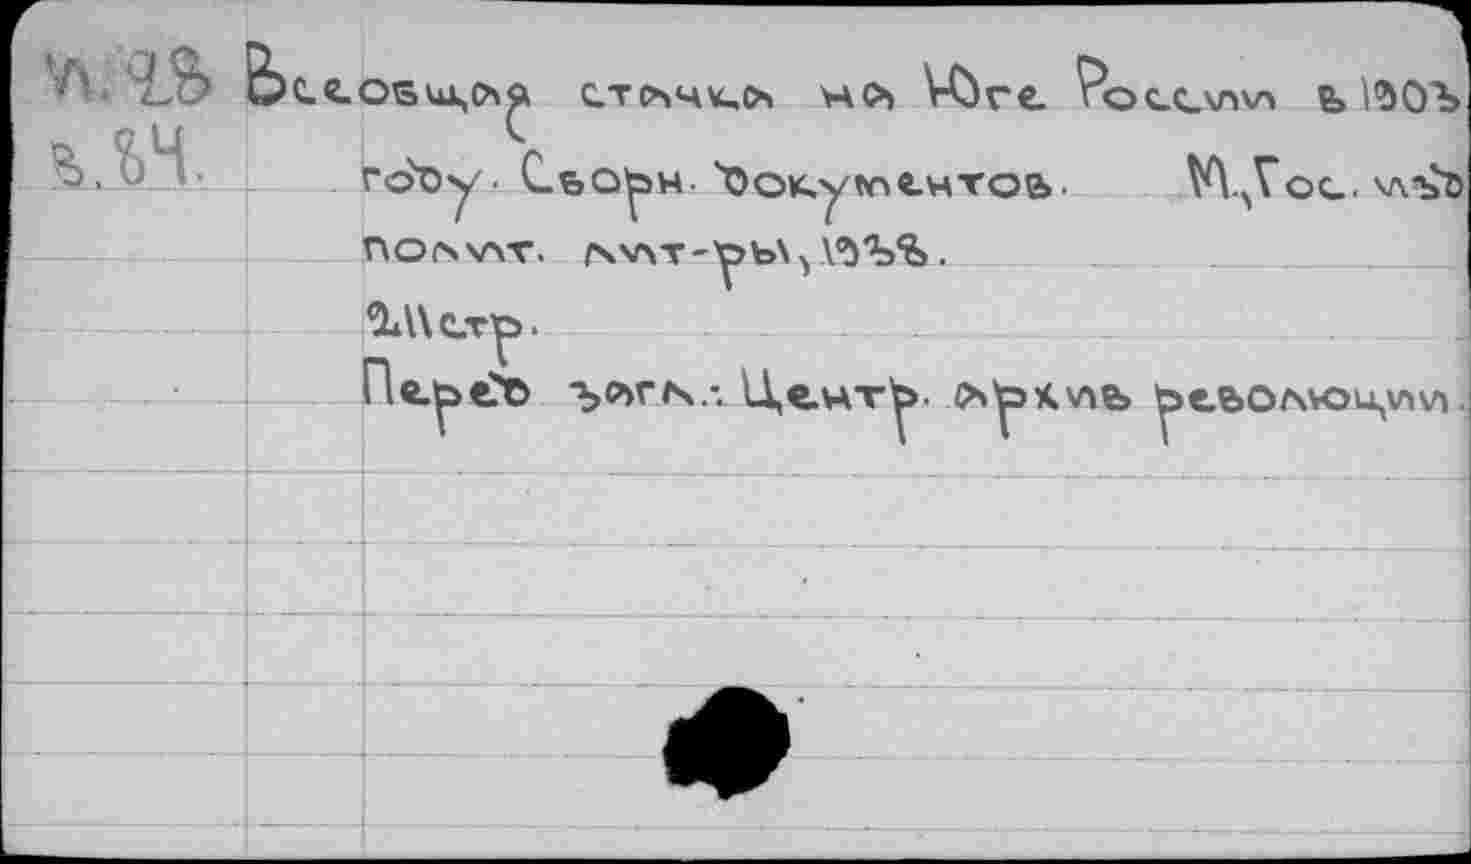 И.28 Всеобщая стачка на Юге России в 1903
В.84. году. Сборн. документов. М., Гос. изд
полит. лит-ры, 1938.
211 стр.
Перед загл.: Центр. архив революции.